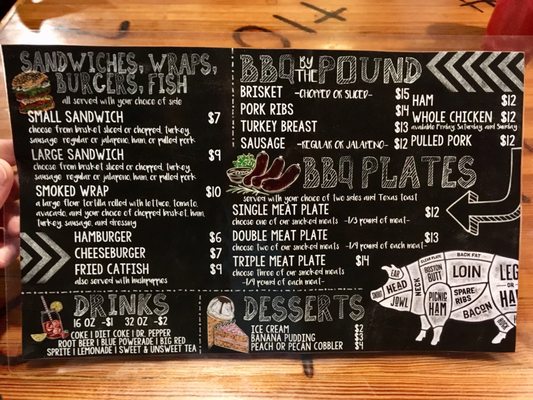 SANDWICHES, WRAPS,
BURGERS, FISH
all served with your choice of side
SMALL SANDWICH $7
choose from brisket sliced or chopped, turkey,
sausage regular or jalapeno, ham, or pulled pork
LARGE SANDWICH $9
choose from brisket sliced or chopped, turkey,
sausage regular or jalapeno, ham, or pulled pork
SMOKED WRAP $10
a large flour tortilla rolled with lettuce, tomato,
avacado, and your choice of chopped brisket, ham,
turkey, sausage, and dressing
HAMBURGER $6
CHEESEBURGER $7
FRIED CATFISH $9
also served with hushpuppies
DRINKS
16 OZ -$1 32 OZ -$2
COKE | DIET COKE | DR. PEPPER
ROOT BEER | BLUE POWERADE | BIG RED
SPRITE | LEMONADE | SWEET & UNSWEET TEA
BBQ BY THE POUND
BRISKET -CHOPPED OR SLICED- $15
PORK RIBS $14
TURKEY BREAST $13
SAUSAGE -REGULAR OR JALAPENO- $12
HAM $12
WHOLE CHICKEN $12
available Friday, Saturday and Sunday
PULLED PORK $12
BBQ PLATES
served with your choice of two sides and Texas toast
SINGLE MEAT PLATE $12
choose one of our smoked meats -1/3 pound of meat-
DOUBLE MEAT PLATE $13
choose two of our smoked meats -1/4 pound of each meat-
TRIPLE MEAT PLATE $14
choose three of our smoked meats
-1/4 pound of each meat-
DESSERTS
ICE CREAM $2
BANANA PUDDING $3
PEACH OR PECAN COBBLER $4
EAR
HEAD
JOWL
CLEAR PLATE
NECK
BACK FAT
BOSTON
BUTT
PICNIC
HAM
LOIN
SPARE
RIBS
BACON
LEG
OR
HA